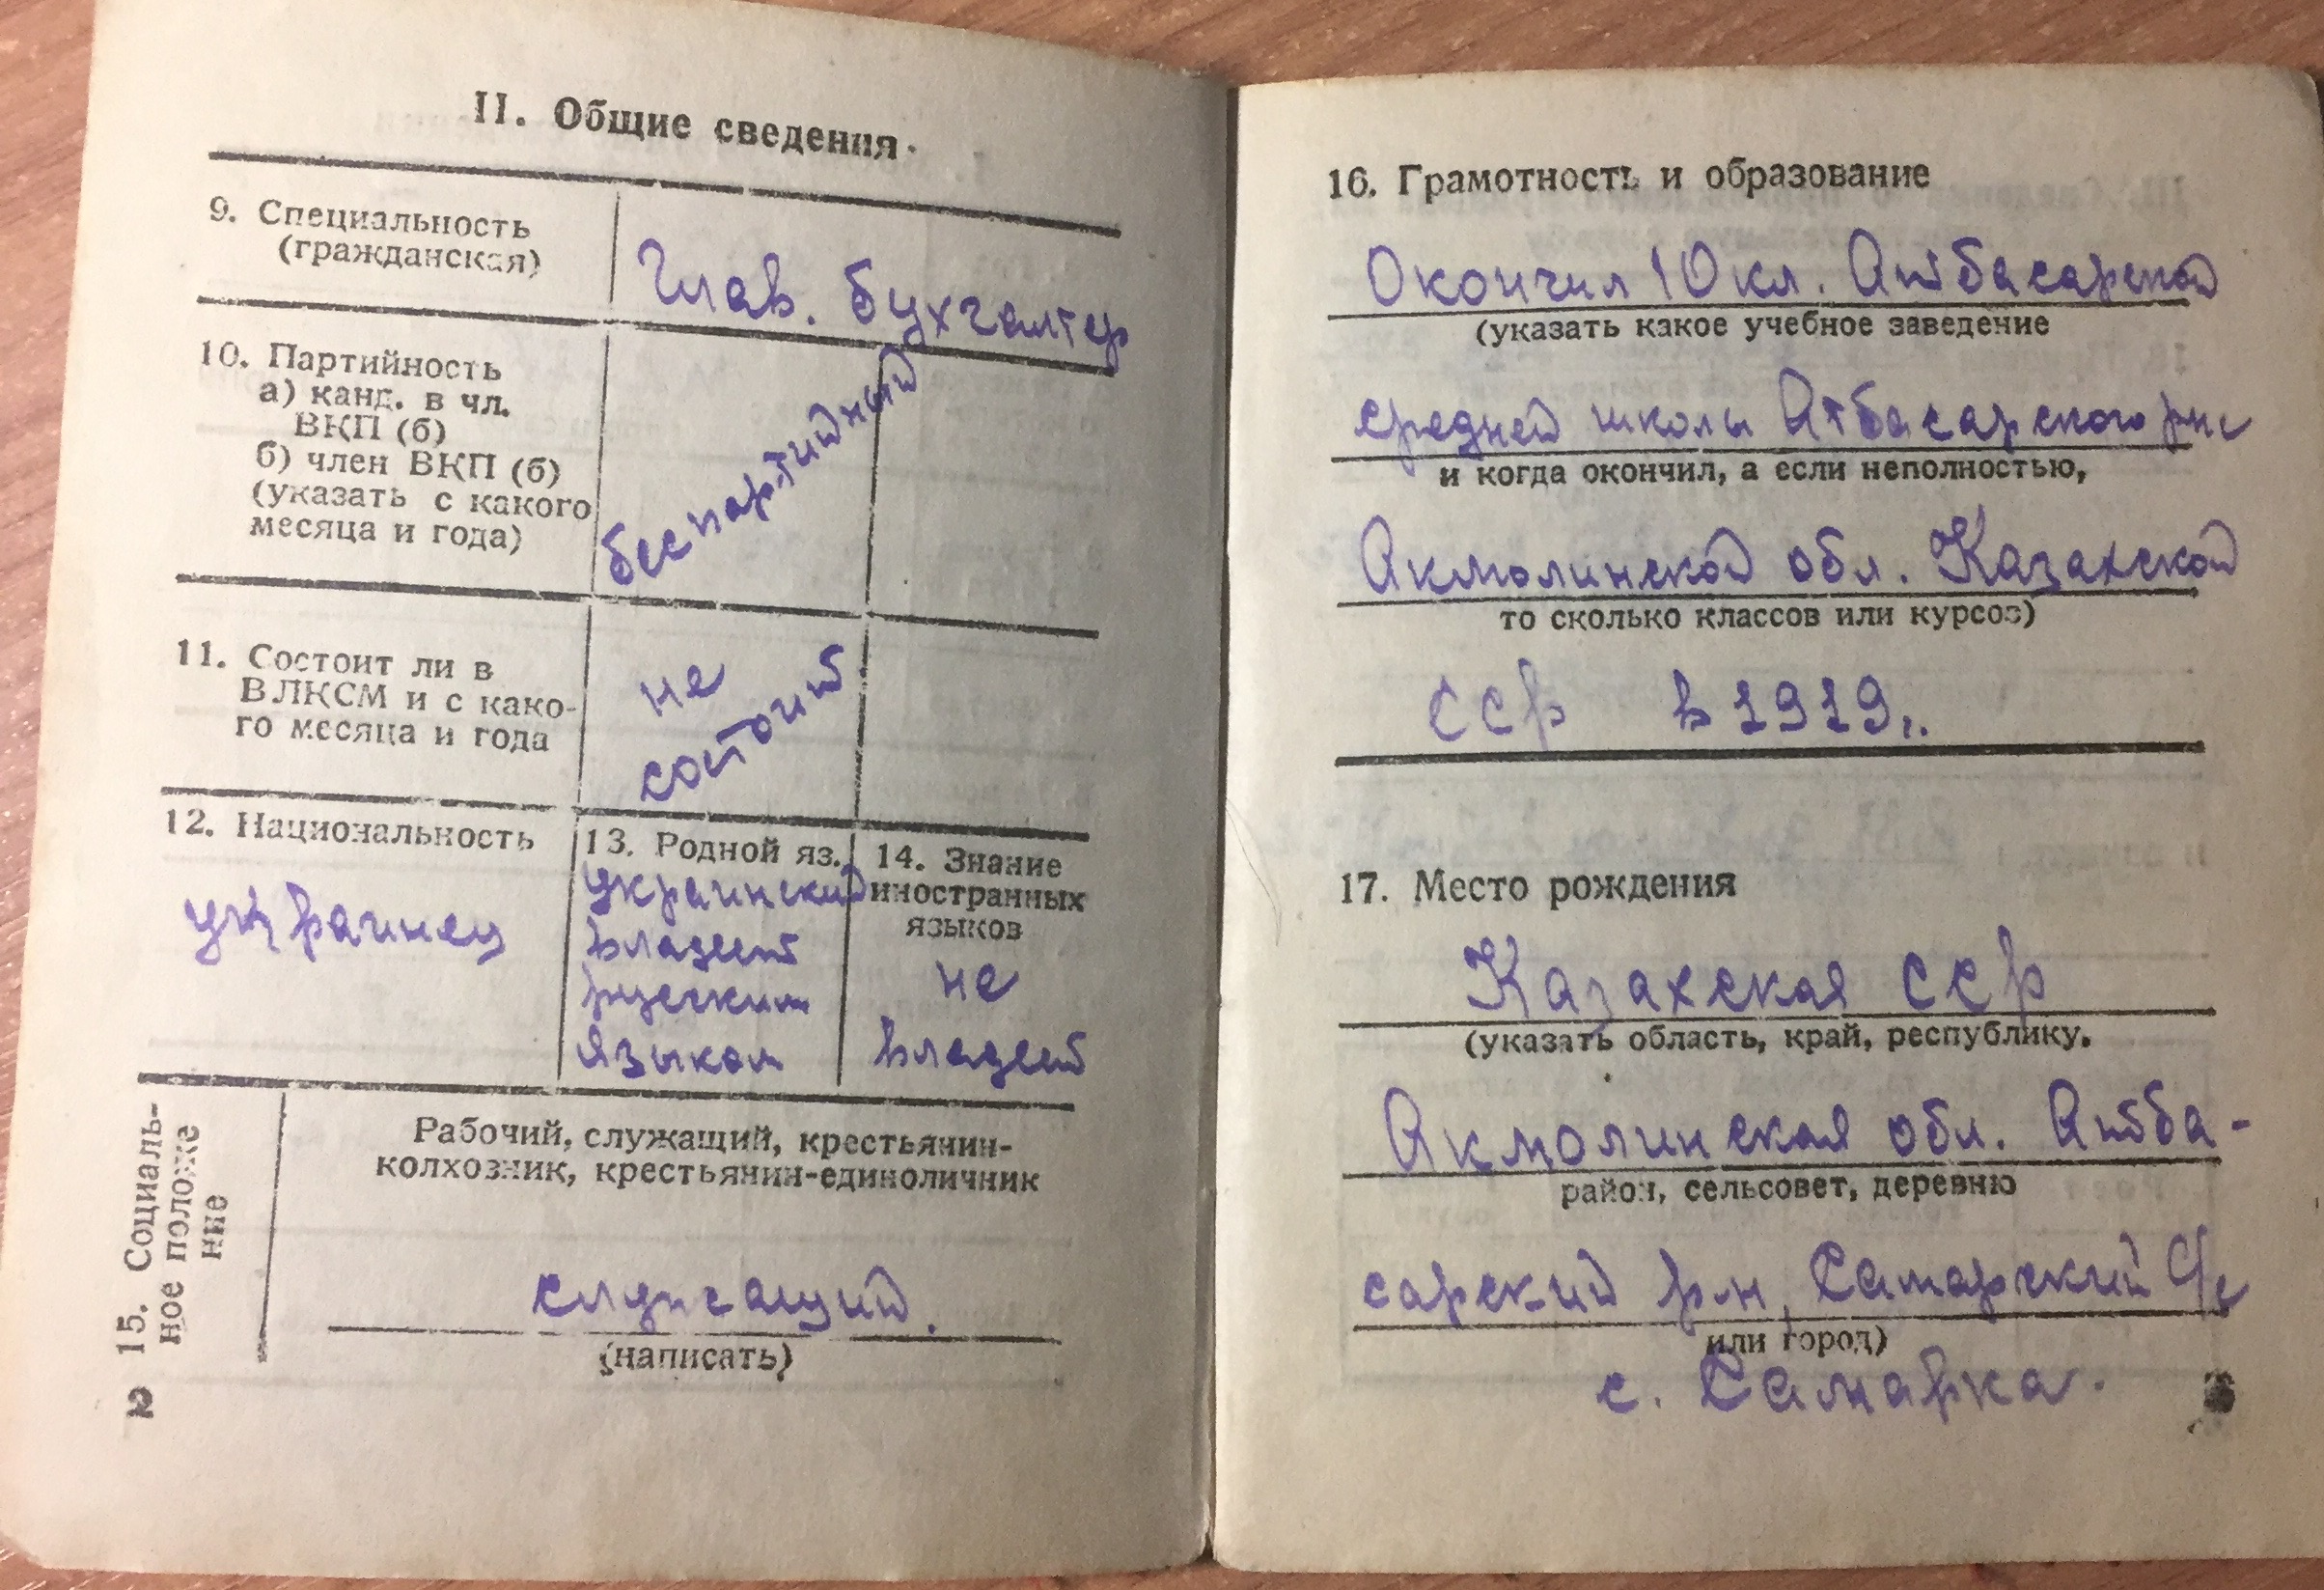 II. Общие сведения.
9. Специальность
(гражданская)
Глав. бухгалтер
10. Партийность
а) канд. в чл.
ВКП (б)
б) член ВКП (б)
(указать с какого
месяца и года)
беспартийный
11. Состоит ли в
ВЛКСМ и с како-
го месяца и года
не
состоит
12. Национальность
украинец
13. Родной яз.
украинский
владеет
русским
языком
14. Знание
иностранных
языков
не
владеет
15. Социаль-
ное положе
ние
Рабочий, служащий, крестьянин-
колхозник, крестьянин-единоличник
служащий.
(написать)
2
16. Грамотность и образование
Окончил 10 кл. Атбасарской
(указать какое учебное заведение
средней школы Атбасарского
и когда окончил, а если неполностью,
Акмолинской обл. Казахской
то сколько классов или курсов)
ССР в 1929г.
17. Место рождения
Казахская ССР
(указать область, край, республику,
Акмолинская обл. Атба-
район, сельсовет, деревню
сарский р-н, Самарский с/с
или город)
с. Самарка.